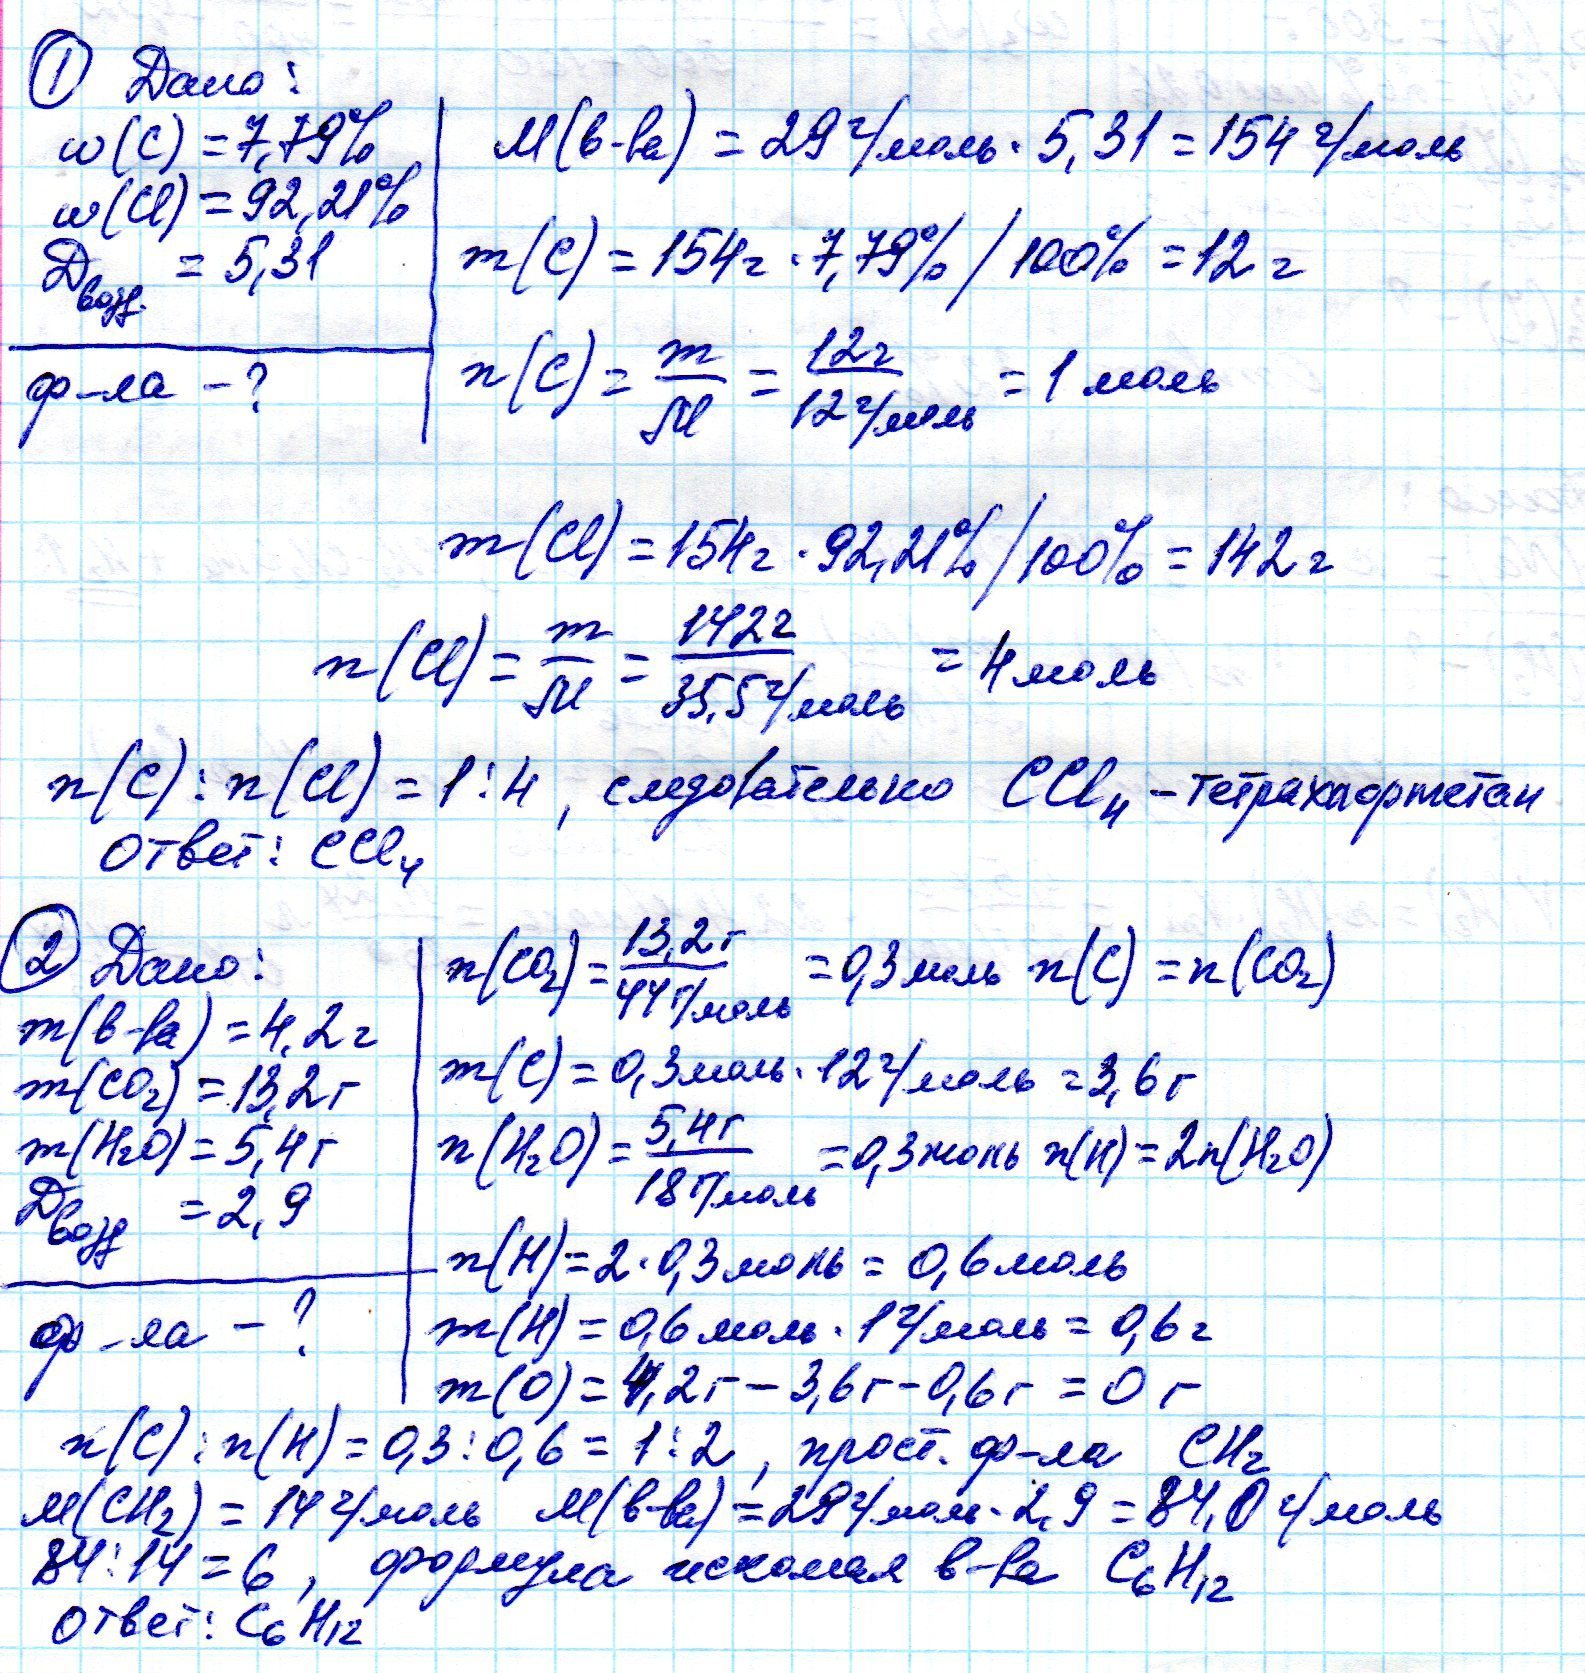 ① Дано:
w(C) = 7,79%
w(Cl) = 92,21%
Dвозд. = 5,31
ф-ла - ?
M(в-ва) = 29 г/моль · 5,31 = 154 г/моль
m(C) = 154 г · 7,79% / 100% = 12 г
n(C) = m/M = 12 г/12 г/моль = 1 моль
m(Cl) = 154 г · 92,21% / 100% = 142 г
n(Cl) = m/M = 142 г/35,5 г/моль = 4 моль
n(C) : n(Cl) = 1 : 4, следовательно CCl₄ - тетрахлорметан
Ответ: CCl₄
② Дано:
m(в-ва) = 4,2 г
m(CO₂) = 13,2 г
m(H₂O) = 5,4 г
Dвозд = 2,9
ф-ла - ?
n(CO₂) = 13,2 г/44 г/моль = 0,3 моль n(C) = n(CO₂)
m(C) = 0,3 моль · 12 г/моль = 3,6 г
n(H₂O) = 5,4 г/18 г/моль = 0,3 моль n(H) = 2n(H₂O)
n(H) = 2 · 0,3 моль = 0,6 моль
m(H) = 0,6 моль · 1 г/моль = 0,6 г
m(O) = 4,2 г - 3,6 г - 0,6 г = 0 г
n(C) : n(H) = 0,3 : 0,6 = 1 : 2, прост. ф-ла CH₂
M(CH₂) = 14 г/моль M(в-ва) = 29 г/моль · 2,9 = 84,0 г/моль
84 : 14 = 6, формула искомая в-ва C₆H₁₂
Ответ: C₆H₁₂